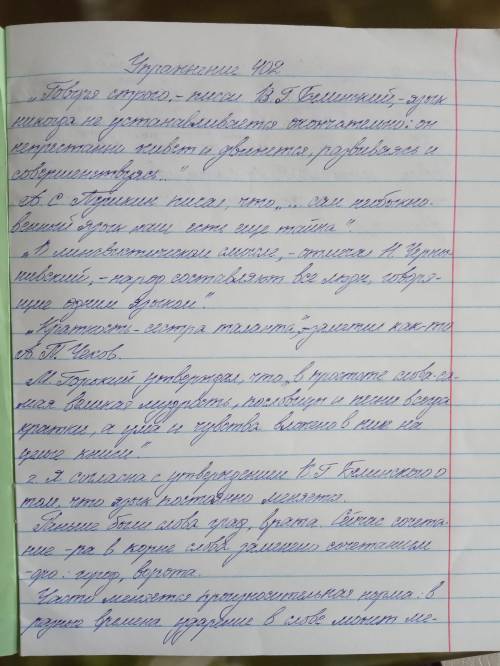 Упражнение 402
„Говоря строго, - писал В. Г. Белинский, - язык
никогда не устанавливается окончательно: он
непрестанно живёт и движется, развиваясь и
совершенствуясь..."
А. С. Пушкин писал, что „... сам необыкно-
венный язык наш есть ещё тайна".
„В лингвистическом смысле, - отмечал Н. Черны-
шевский, - народ составляют все люди, говоря-
щие одним языком".
„Краткость - сестра таланта", - заметил как-то
А. П. Чехов.
М. Горький утверждал, что „в простоте слова - са-
мая великая мудрость, пословицы и песни всегда
кратки, а ума и чувства вложено в них на
целые книги"
2. Я согласна с утверждением В. Г. Белинского о
том, что язык постоянно меняется.
Раньше были слова град, врата. Сейчас сочета-
ние -ра в корне слова заменено сочетанием
-оро: город, ворота.
Часто меняется произносительная норма: в
разные времена ударение в слове может ме-